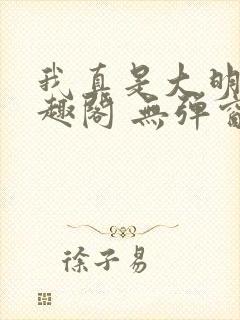 我真是大明
趣阁 無弹窗
徐子易